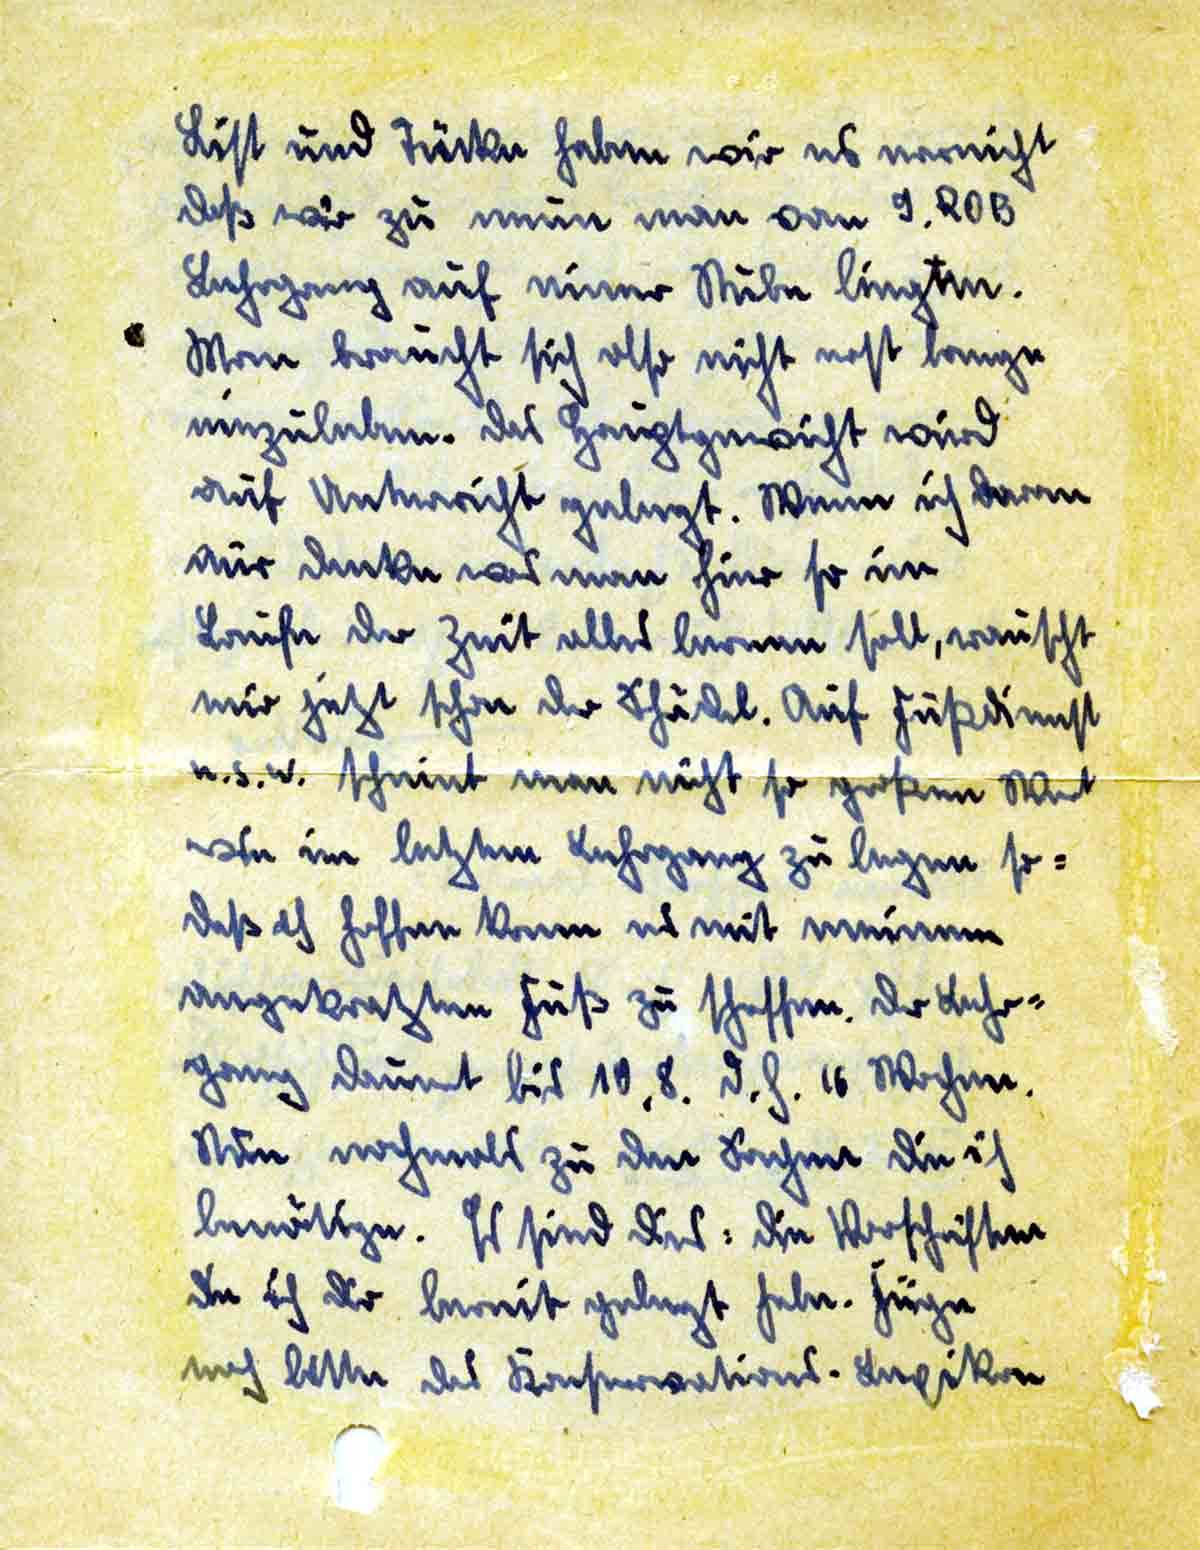 List und Tücke haben wir es erreicht
daß wir zu neun man vom 9. ROB
Lehrgang auf einer Stube liegten.
Man braucht sich also nicht erst lange
einzuleben. Das Hauptgewicht wird
auf Unterricht gelegt. Wenn ich daran
nur denke was man hier so im
Laufe der Zeit alles lernen soll, rauscht
mir jetzt schon der Schädel. Auf Fußdienst
u.s.w. scheint man nicht so großen Wert
wie im letzten Lehrgang zu legen so=
daß ich hoffen kann es mit meinem
angekratzten Fuß zu schaffen. Der Lehr=
gang dauert bis 10.8. d.h. 16 Wochen.
Nun nochmals zu den Sachen die ich
benötige. Es sind dies: die Vorschriften
die ich dir bereit gelegt habe. Füge
noch bitte das Konservations-Lexikon